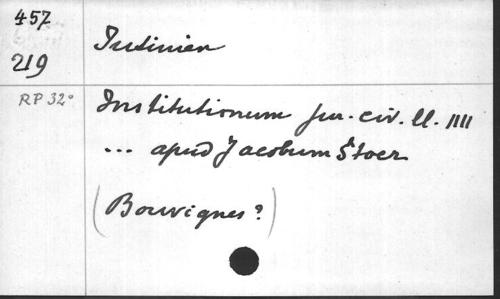 457
219
Justinien
RP 32°
Institutionum jur. civ. ll. IIII
... apud Jacobum Stoer
(Bouvignes ?)